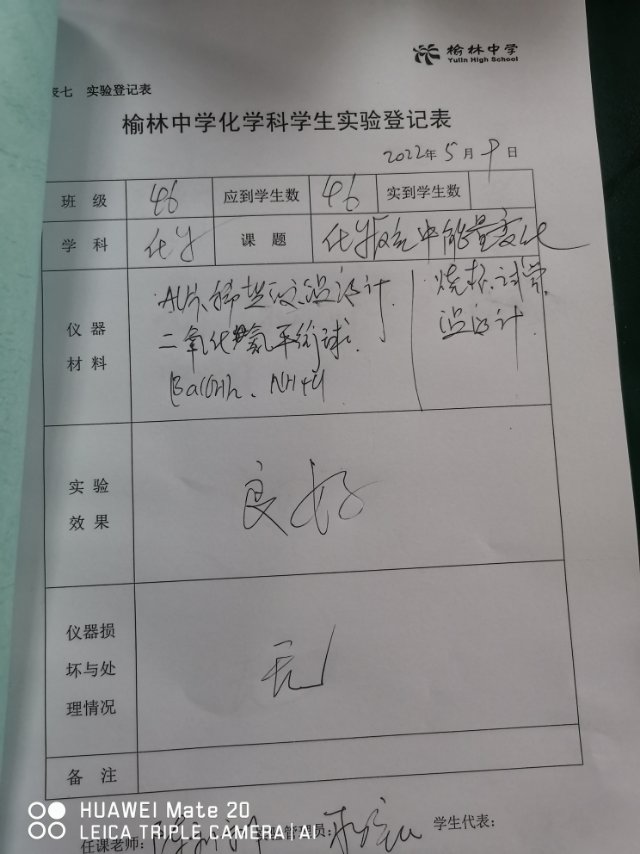 榆林中学
Yulin High School
表七 实验登记表
榆林中学化学科学生实验登记表
2022年 5 月 9 日
班 级 46 应到学生数 46 实到学生数
学 科 化学 课 题 化学反应中能量变化
仪 器
材 料
Al片、稀盐酸、温度计.
二氧化氮平衡球.
Ba(OH)2、NH4Cl
烧杯、试管.
温度计.
实 验
效 果
良好
仪器损
坏与处
理情况
无
备 注
任课老师: 管理员: 学生代表:
HUAWEI Mate 20
LEICA TRIPLE CAMERA | AI